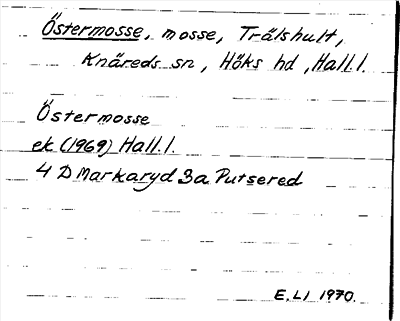 Östermosse, mosse, Trälshult,
Knäreds sn, Höks hd, Hall.l.
Östermosse
ek (1969) Hall.l.
4 D Markaryd 3a Putsered
E.LI 1970.